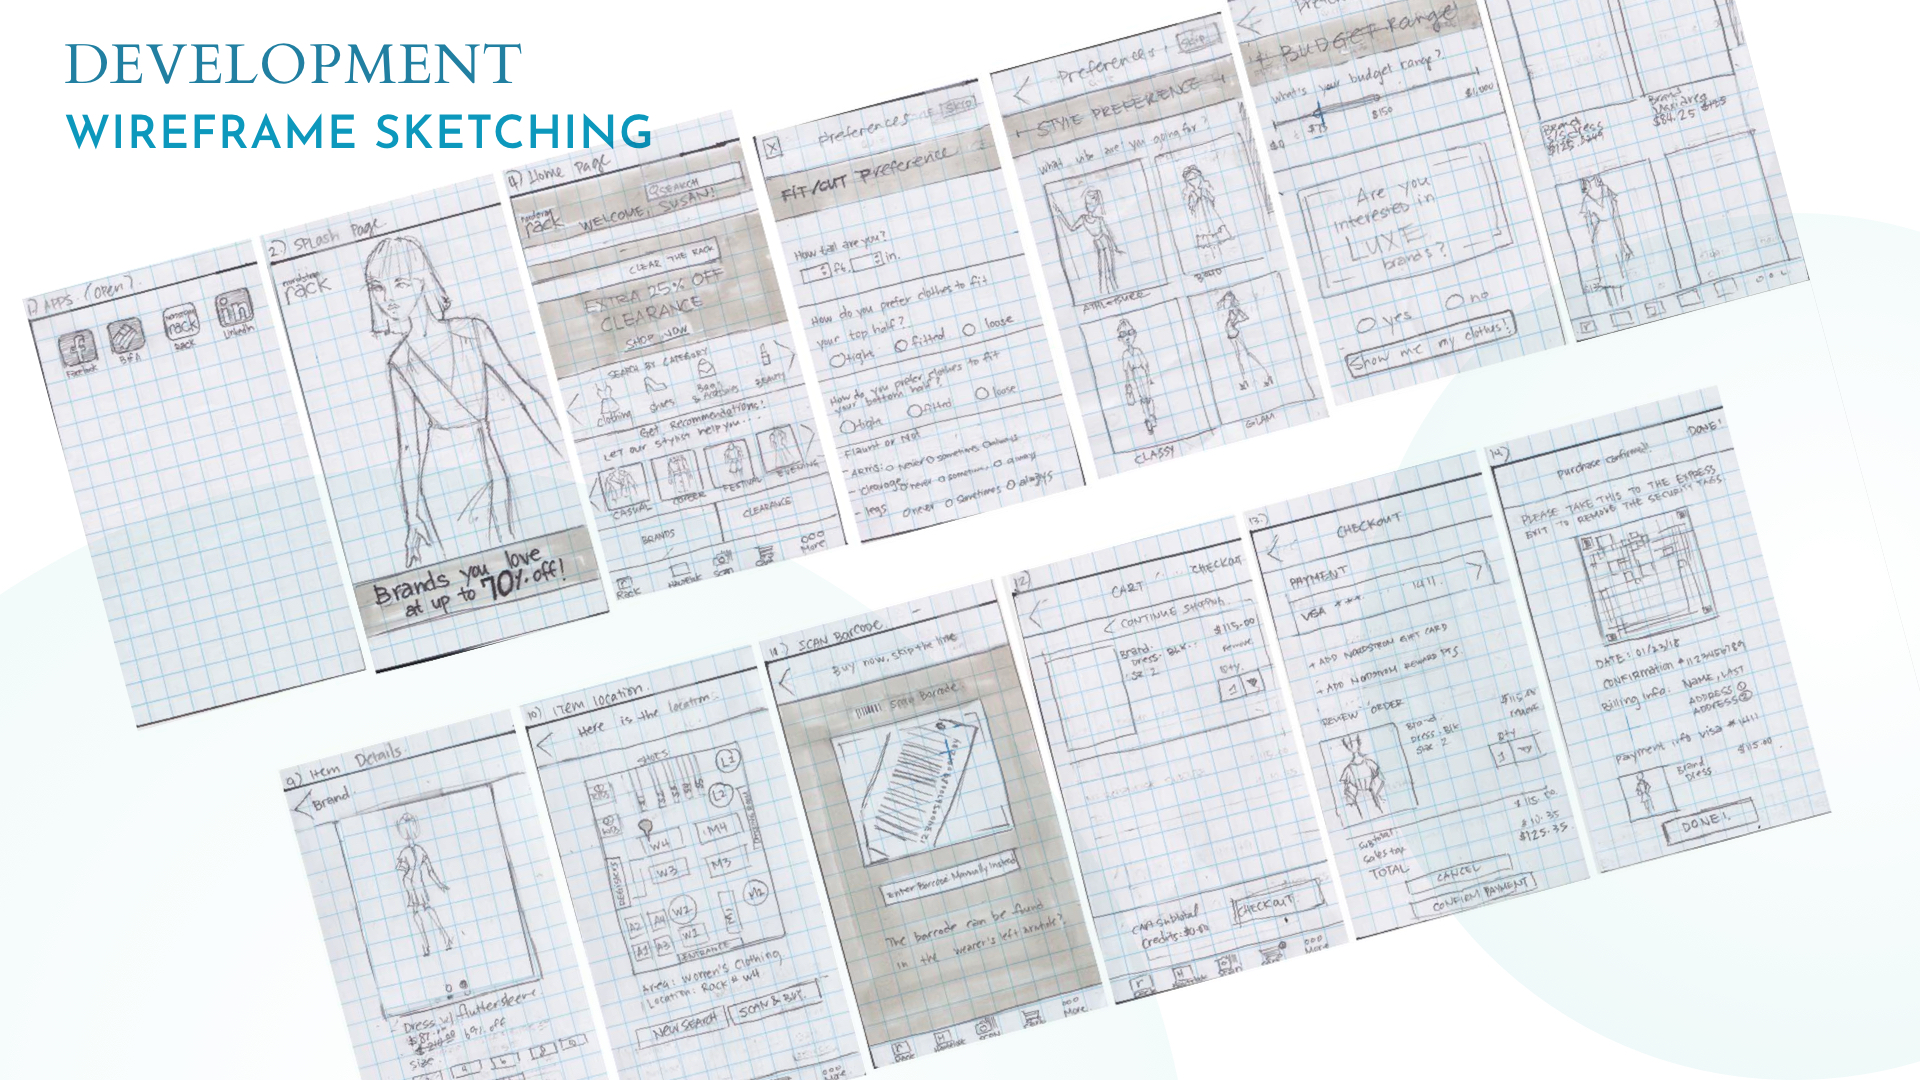 DEVELOPMENT
WIREFRAME SKETCHING
1) APPS (open)
Facebook
BofA
nordstrom
rack
RACK
in
LinkedIn
2.) SPLash Page
nordstrom
rack
Brands you love
at up to 70% off!
4) Home Page
SEARCH
nordstrom
rack
WELCOME, SUSAN!
CLEAR THE RACK
EXTRA 25% OFF
CLEARANCE
SHOP NOW
SEARCH BY CATEGORY
clothing
shoes
Bags
& Accessories
BEAUTY
Get Recommendations!
LET our stylist help you...
CASUAL
CAREER
FESTIVAL
EVENING
BRANDS
CLEARANCE
Rack
Scan
Cart
More
X
preferences
SKIP
FIT/CUT Preference
How tall are you?
ft.
in.
How do you prefer clothes to fit
your top half?
tight
fitted
loose
How do you prefer clothes to fit
your bottom half?
tight
fitted
loose
Flaunt or Not
- ARMS: never sometimes always
- cleavage never sometimes always
- legs never sometimes always
Preferences
Skip
STYLE PREFERENCE
what vibe are you going for?
BOHO
CLASSY
GLAM
BUDGET Range
what's your budget range?
$0
$75
$150
$1,000
Are you
interested in
LUXE
brands?
yes
no
Show me my clothes!
Brand
$125
Brand
Maxi dress
$84.25
9) Item Details
Brand
Dress w/ fluttersleeve
$87
69% off
size
10) ITem location
Here is the location.
SHOES
L1
L2
W4
M4
W3
M3
REGISTERS
A2
A4
W2
A1
A3
W1
M1
M2
ENTRANCE
Area: Women's Clothing
Location: Rack # W4
NEW SEARCH
SCAN & BUY
More
11) SCAN Barcode
Buy now, skip the line
Scan Barcode
Enter Barcode Manually Instead
The barcode can be found
in the wearer's left armhole?
Rack
Scan
Cart
More
12)
CART
CHECKOUT
< CONTINUE SHOPPING
Brand
Dress. BLK
SZ 2
$115.00
Remove
Qty.
1
Cart Subtotal
Credits: $0.00
CHECKOUT
Rack
Scan
Cart
More
13.)
CHECKOUT
PAYMENT
VISA *** 1411
+ ADD NORDSTROM GIFT CARD
+ ADD NORDSTROM REWARD PTS
REVIEW ORDER
Brand
Dress, BLK
Size 2
$115.00
remove
Qty
1
Subtotal
$115.00
Sales tax
$10.35
TOTAL
$125.35
CANCEL
CONFIRM PAYMENT
14)
DONE!
purchase confirmed!
PLEASE TAKE THIS TO THE EXPRESS
EXIT TO REMOVE THE SECURITY TAGS
DATE: 01/23/18
CONFIRMATION #1123456789
Billing Info: NAME, LAST
ADDRESS 1
ADDRESS 2
Payment info VISA #1411
Brand
Dress
$115.00
DONE!